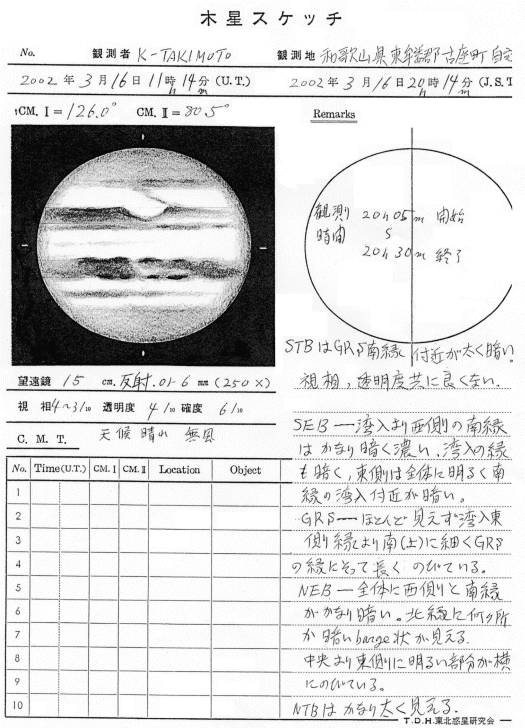 木星スケッチ
No. 観測者 K-TAKIMOTO 観測地 和歌山県東牟婁郡古座町 自宅
2002年3月16日11時14分(U.T.) 2002年3月16日20時14分(J.S.T
h m h m
ιCM. I=126.0° CM. II=80.5°
Remarks
観測時間 20h05m 開始
S
20h30m 終了
STBはGRS南縁付近が太く暗い。
視相、透明度共に良くない。
望遠鏡 15 cm. 反射. Or-6 mm (250×)
視相 4~3/10 透明度 4/10 確度 6/10
C. M. T. 天候晴れ 無風
No. Time(U.T.) CM. I CM. II Location Object
1
2
3
4
5
6
7
8
9
10
SEB—湾入より西側の南縁
はかなり暗く濃い、湾入の縁
も暗く、東側は全体に明るく南
縁の湾入付近が暗い。
GRS—ほとんど見えず湾入東
側縁より南(上)に細くGRS
の縁にそって長くのびている。
NEB—全体に西側りと南縁
がかなり暗い。北縁に何ヶ所
か暗いbarge状が見える
中央より東側に明るい部分が横
にのびている。
NTBはかなり太く見える。
T.D.H.東北惑星研究会